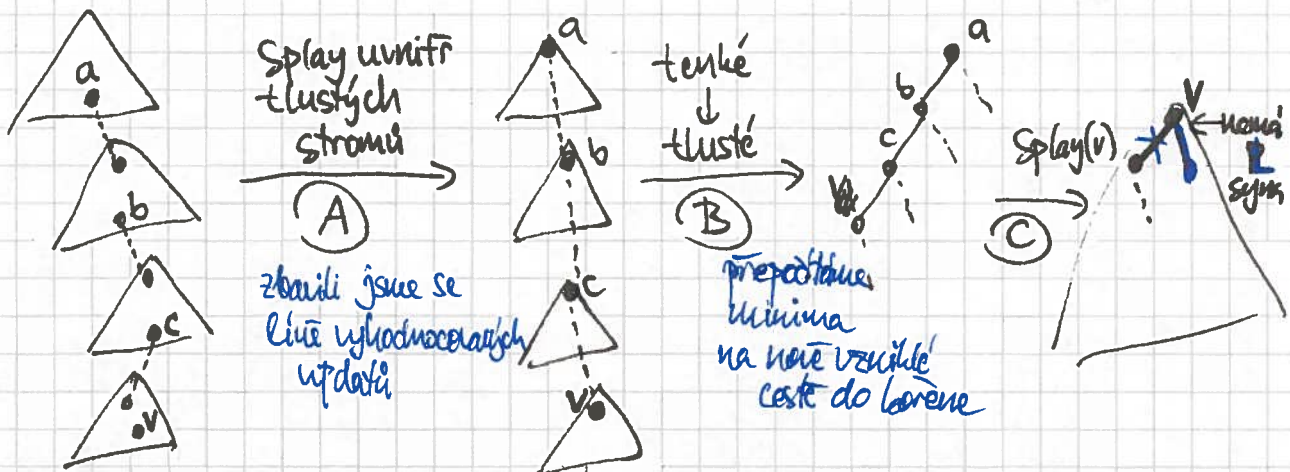 a
b
c
v
Splay uvnitř
tlustých
stromů
A
zbavili jsme se
líně vyhodnocovaných
updatů
a
b
c
v
tenké
↓
tlusté
B
přepočítáme
minima
na nově vzniklé
cestě do kořene
a
b
c
Splay(v)
C
v
nemá
L
syna